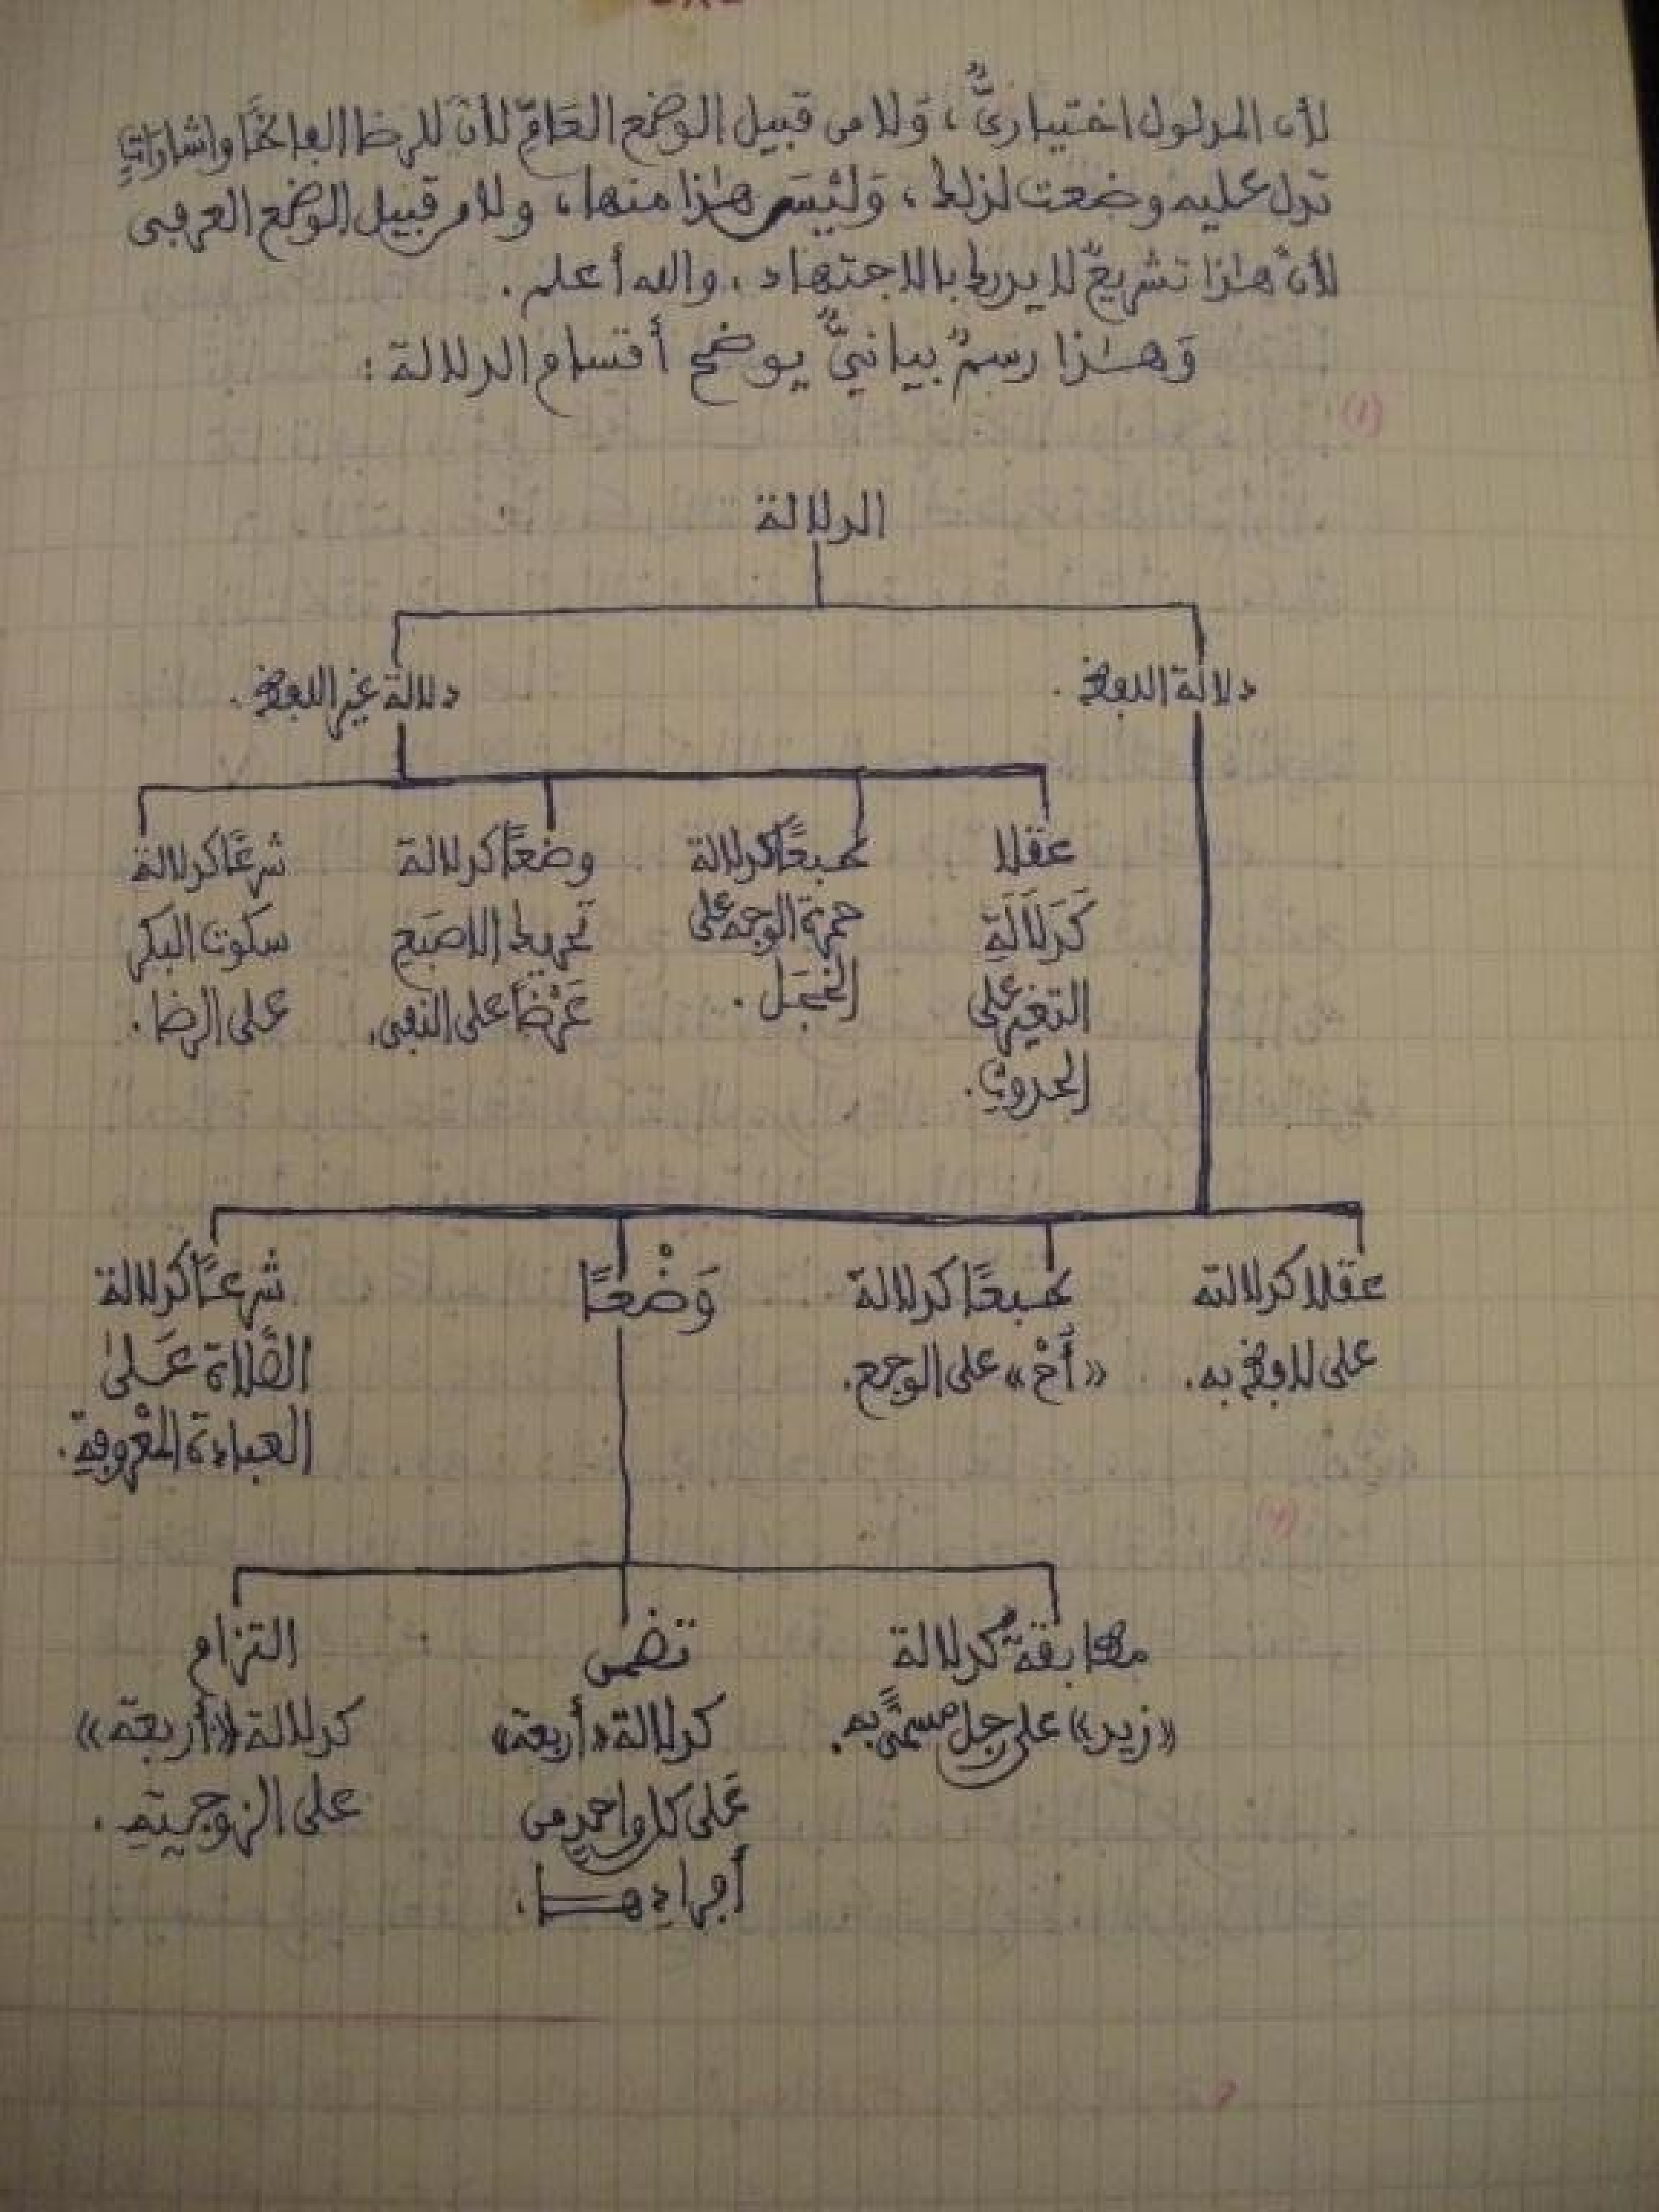 لأن المدلول اختياريٌّ، وَلا من قبيل الوضع العَامِّ لأنّ للرضا ألفاظًا وإشاراتٍ
تدل عليه وضعت لذلك، وَلَيْسَ هٰذا منها، ولا من قبيل الوضع العرفي
لأنّ هٰذا تشريعٌ لا يدرك بالاجتهاد، والله أعلم.
وَهٰذا رسمٌ بيانيٌّ يوضح أقسام الدلالة:
(١)
الدلالة
دلالة اللفظ.
دلالة غير اللفظ.
عقلا
كَدَلَالَةِ
التغير على
الحدوث.
طبعًا كدلالة
حمرة الوجه على
الخَجَل.
وضعًا كدلالة
تحريك الاصبَع
عَرْضًا على النفي.
شرعًا كدلالة
سكوت البكر
على الرضا.
عقلا كدلالته
على لافظ به.
طبعًا كدلالة
«أَخْ» على الوجع.
وَضْعًا
شرعًا كدلالة
الصَّلاة عَلىٰ
العبادة المعْروفة.
مطابقة كدلالة
«زيد» على رجل مسمًّى به.
تضمن
كدلالة «أربعة»
عَلى كل واحدٍ من
أفرادِها.
التزام
كدلالة «أربعة»
على الزوجيةِ.